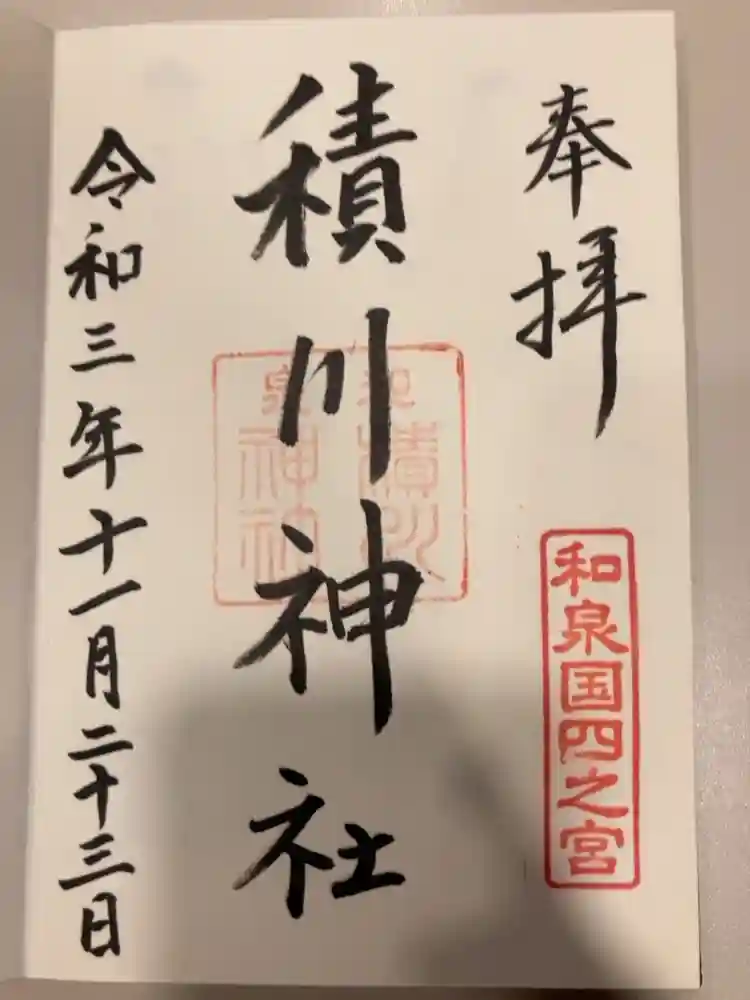 奉拝
和泉国四之宮
積川神社
和泉
積川
神社
令和三年十一月二十三日